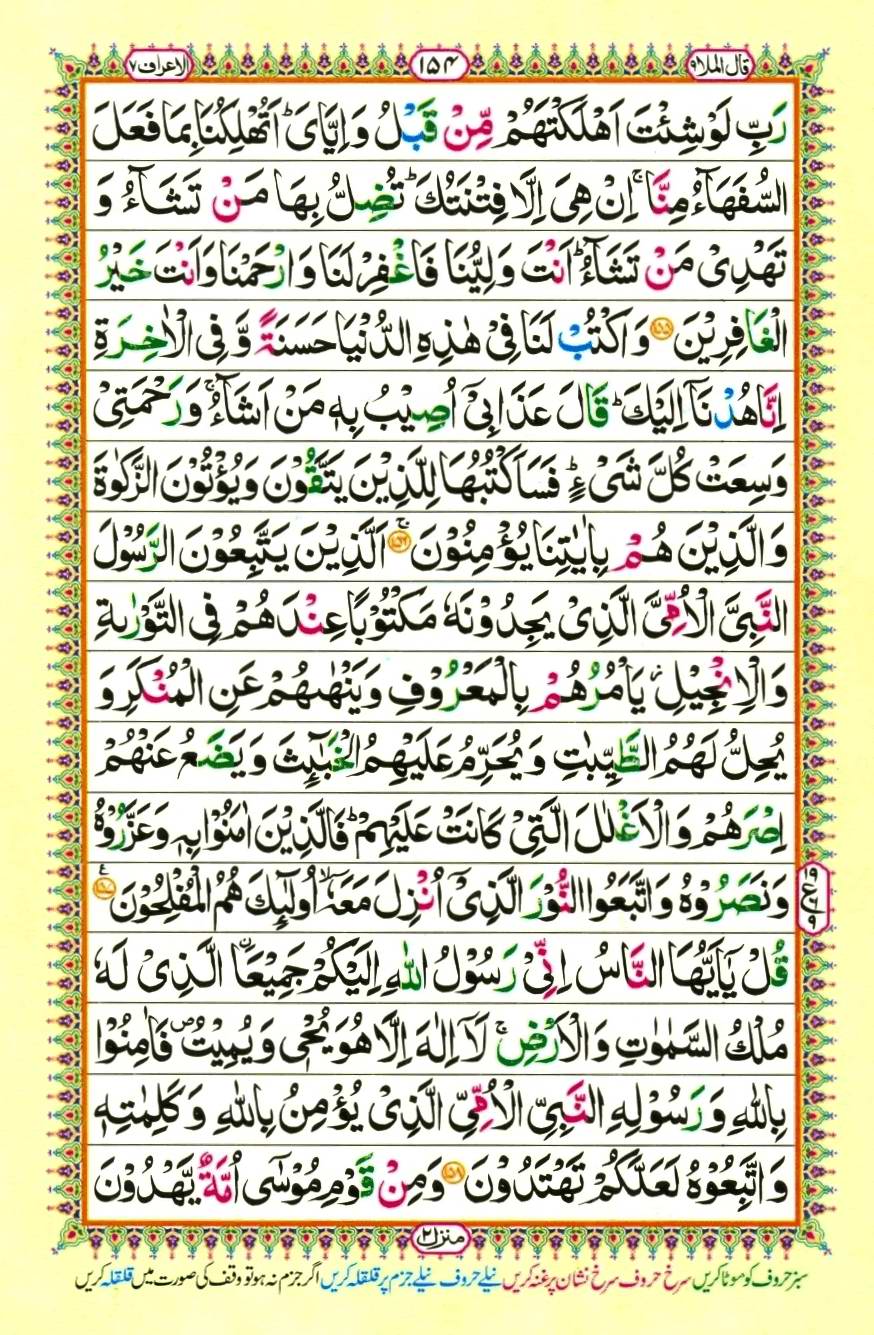 قال الملا۹
۱۵۴
الاعراف۷
رَبِّ لَوْشِئْتَ اَهْلَكْتَهُمْ مِّنْ قَبْلُ وَاِيَّايَ ؕ اَتُهْلِكُنَا بِمَا فَعَلَ
السُّفَهَآءُ مِنَّا ۚ اِنْ هِىَ اِلَّا فِتْنَتُكَ ؕ تُضِلُّ بِهَا مَنْ تَشَآءُ وَ
تَهْدِىْ مَنْ تَشَآءُ ؕ اَنْتَ وَلِيُّنَا فَاغْفِرْ لَنَا وَارْحَمْنَا وَاَنْتَ خَيْرُ
الْغَافِرِيْنَ ۱۵۵ وَاكْتُبْ لَنَا فِىْ هٰذِهِ الدُّنْيَا حَسَنَةً وَّفِى الْاٰخِرَةِ
اِنَّا هُدْنَاۤ اِلَيْكَ ؕ قَالَ عَذَابِىْۤ اُصِيْبُ بِهٖ مَنْ اَشَآءُ ۚ وَرَحْمَتِىْ
وَسِعَتْ كُلَّ شَىْءٍ ؕ فَسَاَكْتُبُهَا لِلَّذِيْنَ يَتَّقُوْنَ وَيُؤْتُوْنَ الزَّكٰوةَ
وَالَّذِيْنَ هُمْ بِاٰيٰتِنَا يُؤْمِنُوْنَ ۚ ۱۵۶ اَلَّذِيْنَ يَتَّبِعُوْنَ الرَّسُوْلَ
النَّبِىَّ الْاُمِّىَّ الَّذِىْ يَجِدُوْنَهٗ مَكْتُوْبًا عِنْدَهُمْ فِى التَّوْرٰىةِ
وَالْاِنْجِيْلِ ؗ يَاْمُرُهُمْ بِالْمَعْرُوْفِ وَيَنْهٰىهُمْ عَنِ الْمُنْكَرِ وَ
يُحِلُّ لَهُمُ الطَّيِّبٰتِ وَيُحَرِّمُ عَلَيْهِمُ الْخَبٰٓئِثَ وَيَضَعُ عَنْهُمْ
اِصْرَهُمْ وَالْاَغْلٰلَ الَّتِىْ كَانَتْ عَلَيْهِمْ ؕ فَالَّذِيْنَ اٰمَنُوْا بِهٖ وَعَزَّرُوْهُ
وَنَصَرُوْهُ وَاتَّبَعُوا النُّوْرَ الَّذِىْۤ اُنْزِلَ مَعَهٗۤ ۙ اُولٰٓئِكَ هُمُ الْمُفْلِحُوْنَ ۱۵۷ ع
۹
ع
۶
۹
قُلْ يٰۤاَيُّهَا النَّاسُ اِنِّىْ رَسُوْلُ اللّٰهِ اِلَيْكُمْ جَمِيْعًا ۨ الَّذِىْ لَهٗ
مُلْكُ السَّمٰوٰتِ وَالْاَرْضِ ۚ لَاۤ اِلٰهَ اِلَّا هُوَ يُحْىٖ وَيُمِيْتُ ۖ فَاٰمِنُوْا
بِاللّٰهِ وَرَسُوْلِهِ النَّبِىِّ الْاُمِّىِّ الَّذِىْ يُؤْمِنُ بِاللّٰهِ وَكَلِمٰتِهٖ
وَاتَّبِعُوْهُ لَعَلَّكُمْ تَهْتَدُوْنَ ۱۵۸ وَمِنْ قَوْمِ مُوْسٰٓى اُمَّةٌ يَّهْدُوْنَ
منزل۲
سبز حروف کو موٹا کریں سرخ حروف سرخ نشان پر غنہ کریں نیلے حروف نیلے جزم پر قلقلہ کریں اگر جزم نہ ہو تو وقف کی صورت میں قلقلہ کریں